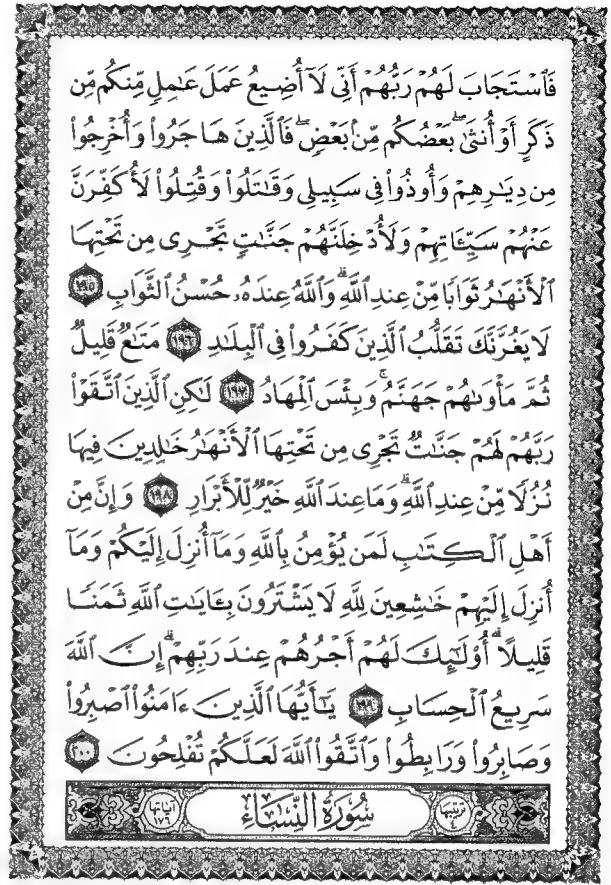 فَٱسْتَجَابَ لَهُمْ رَبُّهُمْ أَنِّى لَآ أُضِيعُ عَمَلَ عَٰمِلٍ مِّنكُم مِّن
ذَكَرٍ أَوْ أُنثَىٰ ۖ بَعْضُكُم مِّنۢ بَعْضٍ ۖ فَٱلَّذِينَ هَاجَرُوا۟ وَأُخْرِجُوا۟
مِن دِيَٰرِهِمْ وَأُوذُوا۟ فِى سَبِيلِى وَقَٰتَلُوا۟ وَقُتِلُوا۟ لَأُكَفِّرَنَّ
عَنْهُمْ سَيِّـَٔاتِهِمْ وَلَأُدْخِلَنَّهُمْ جَنَّٰتٍ تَجْرِى مِن تَحْتِهَا
ٱلْأَنْهَٰرُ ثَوَابًا مِّنْ عِندِ ٱللَّهِ ۗ وَٱللَّهُ عِندَهُۥ حُسْنُ ٱلثَّوَابِ ١٩٥
لَا يَغُرَّنَّكَ تَقَلُّبُ ٱلَّذِينَ كَفَرُوا۟ فِى ٱلْبِلَٰدِ ١٩٦ مَتَٰعٌ قَلِيلٌ
ثُمَّ مَأْوَىٰهُمْ جَهَنَّمُ ۚ وَبِئْسَ ٱلْمِهَادُ ١٩٧ لَٰكِنِ ٱلَّذِينَ ٱتَّقَوْا۟
رَبَّهُمْ لَهُمْ جَنَّٰتٌ تَجْرِى مِن تَحْتِهَا ٱلْأَنْهَٰرُ خَٰلِدِينَ فِيهَا
نُزُلًا مِّنْ عِندِ ٱللَّهِ ۗ وَمَا عِندَ ٱللَّهِ خَيْرٌ لِّلْأَبْرَارِ ١٩٨ وَإِنَّ مِنْ
أَهْلِ ٱلْكِتَٰبِ لَمَن يُؤْمِنُ بِٱللَّهِ وَمَآ أُنزِلَ إِلَيْكُمْ وَمَآ
أُنزِلَ إِلَيْهِمْ خَٰشِعِينَ لِلَّهِ لَا يَشْتَرُونَ بِـَٔايَٰتِ ٱللَّهِ ثَمَنًا
قَلِيلًا ۗ أُو۟لَٰٓئِكَ لَهُمْ أَجْرُهُمْ عِندَ رَبِّهِمْ ۗ إِنَّ ٱللَّهَ
سَرِيعُ ٱلْحِسَابِ ١٩٩ يَٰٓأَيُّهَا ٱلَّذِينَ ءَامَنُوا۟ ٱصْبِرُوا۟
وَصَابِرُوا۟ وَرَابِطُوا۟ وَٱتَّقُوا۟ ٱللَّهَ لَعَلَّكُمْ تُفْلِحُونَ ٢٠٠
ترتيبها ٤ سُورَةُ النِّسَاءِ آياتها ١٧٦